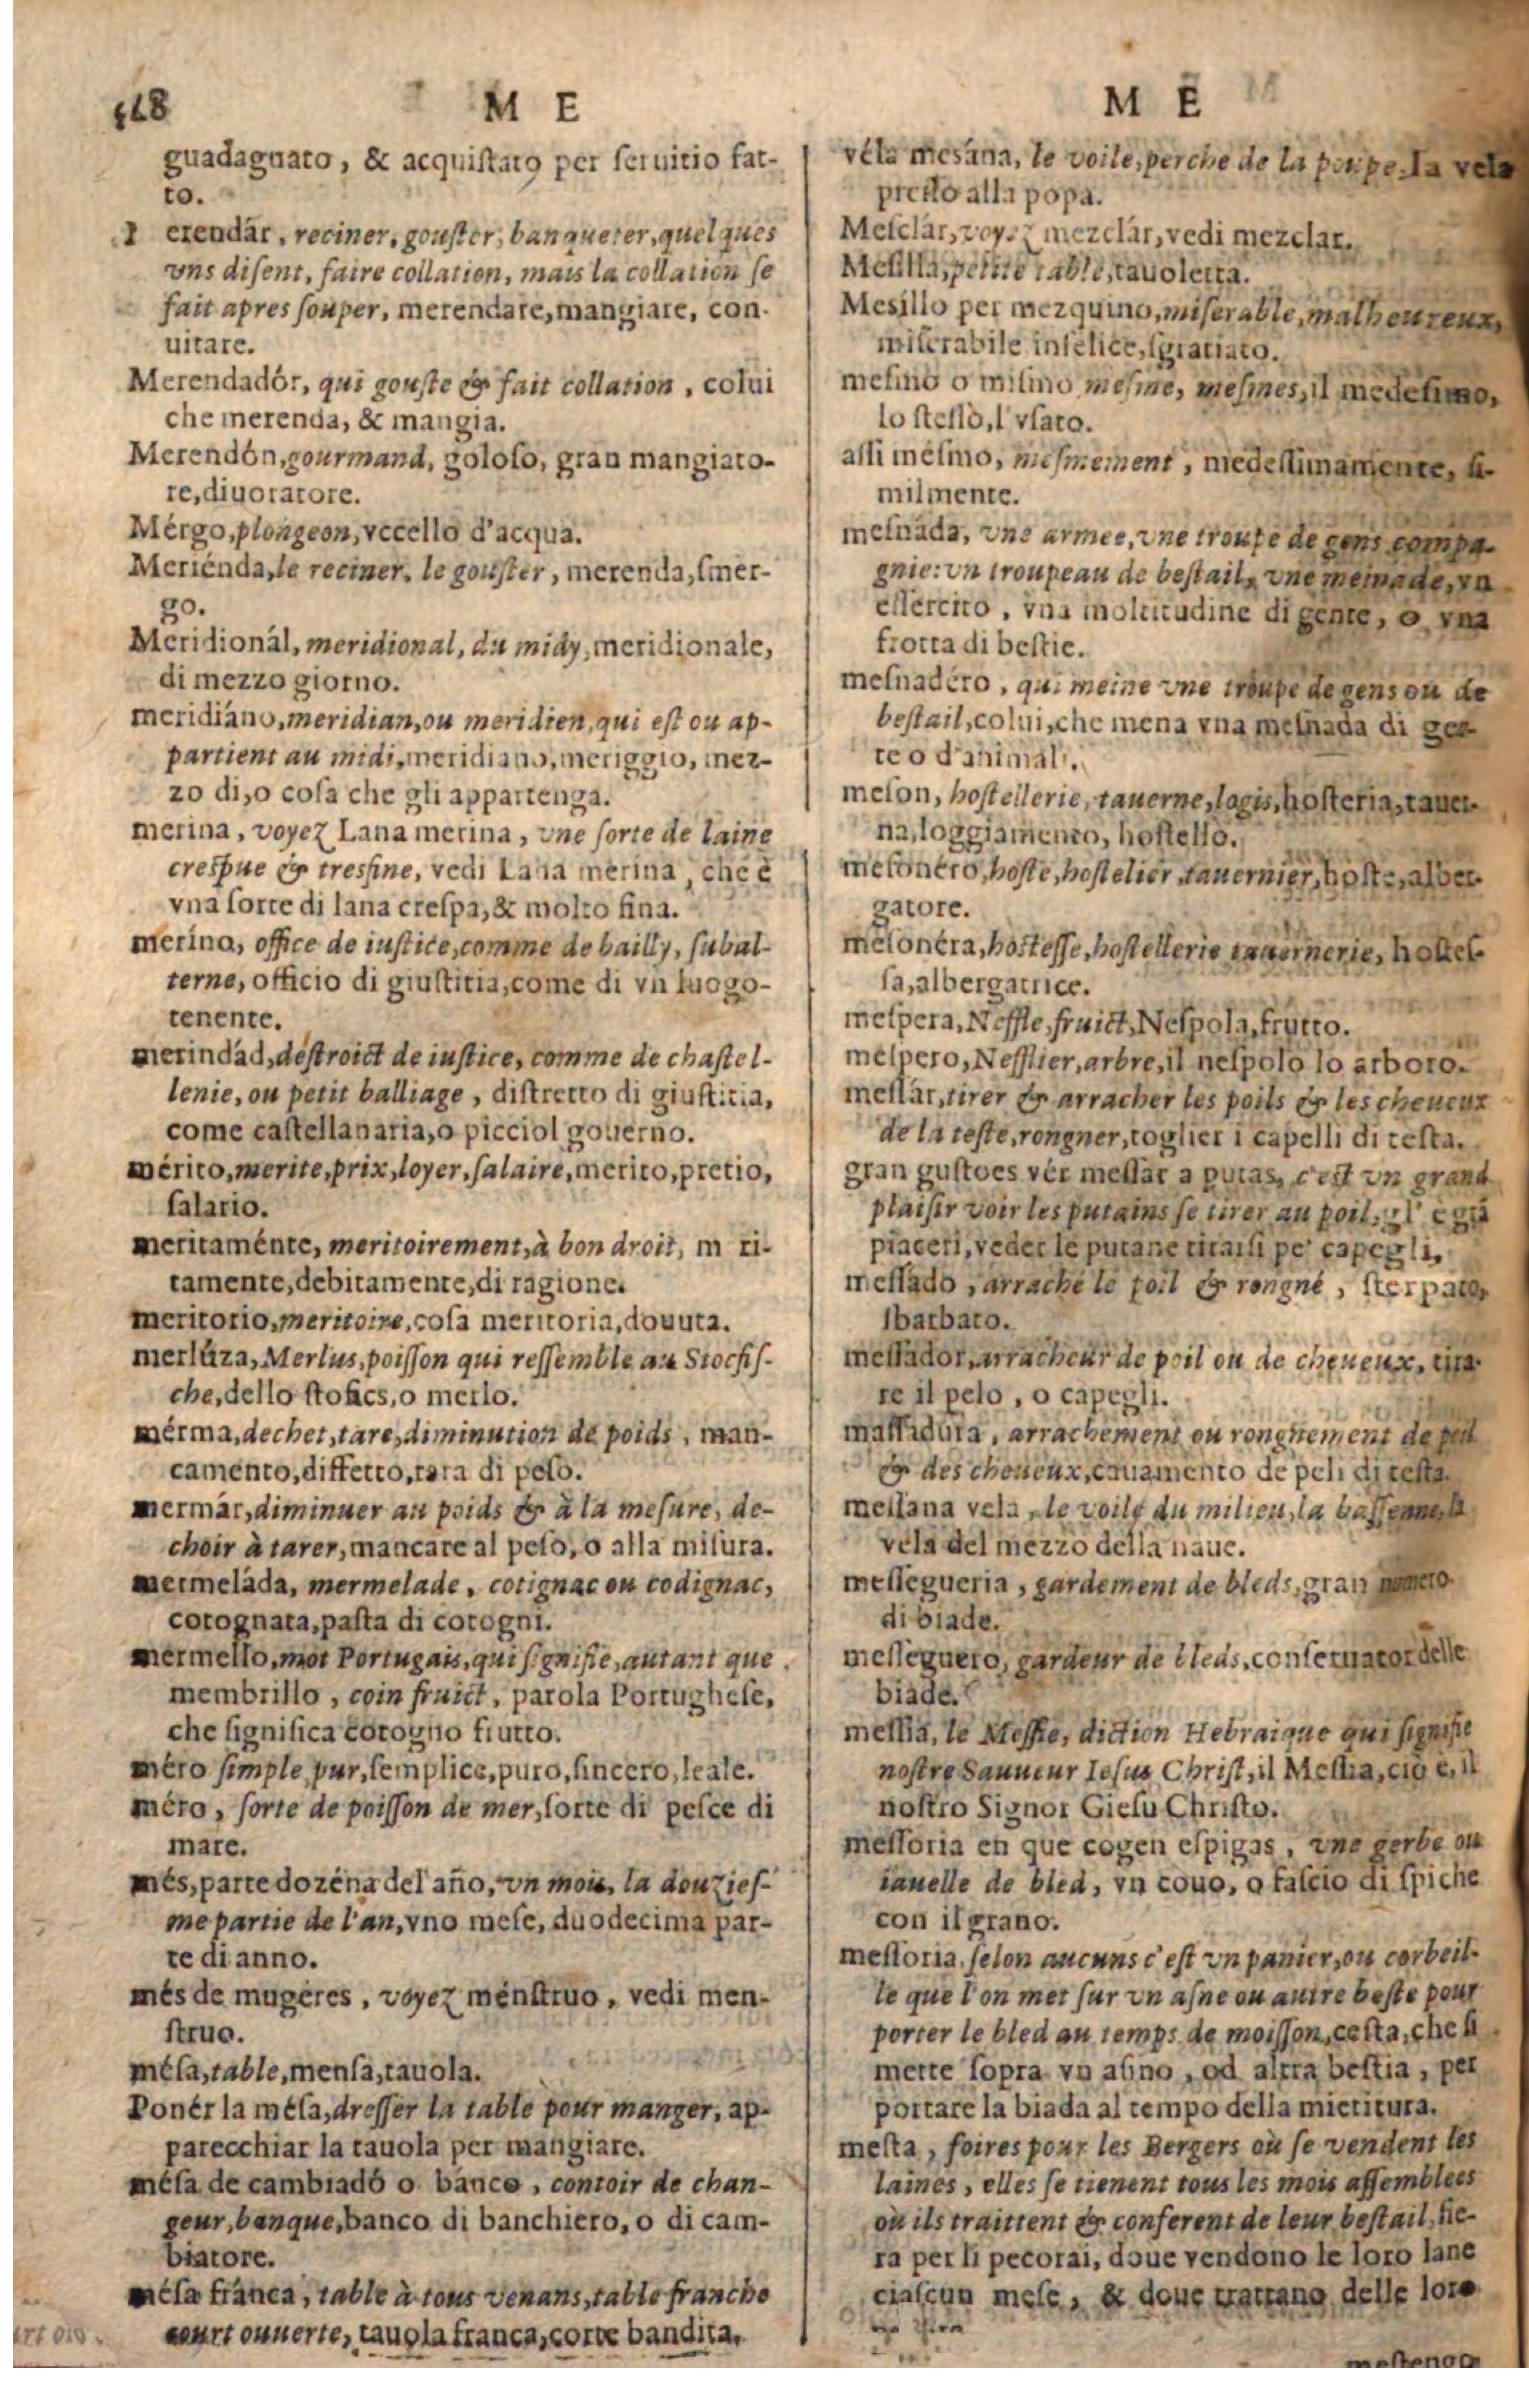 M E
guadagnato, & acquistato per seruitio fat-
to.
erendár, reciner, gouster, banqueter, quelques
vns disent, faire collation, mais la collation se
fait apres souper, merendare, mangiare, con-
uitare.
Merendadór, qui gouste & fait collation, colui
che merenda, & mangia.
Merendón, gourmand, goloso, gran mangiato-
re, diuoratore.
Mérgo, plongeon, vccello d'acqua.
Meriénda, le reciner, le gouster, merenda, smer-
go.
Meridionál, meridional, du midy, meridionale,
di mezzo giorno.
meridiáno, meridian, ou meridien, qui est ou ap-
partient au midi, meridiano, meriggio, mez-
zo di, o cosa che gli appartenga.
merina, voyez Lana merina, vne sorte de laine
crespue & tresfine, vedi Lana merina, che è
vna sorte di lana crespa, & molto fina.
merino, office de iustice, comme de bailly, subal-
terne, officio di giustitia, come di vn luogo-
tenente.
merindád, destroict de iustice, comme de chastel-
lenie, ou petit balliage, distretto di giustitia,
come castellanaria, o picciol gouerno.
mérito, merite, prix, loyer, salaire, merito, pretio,
salario.
meritaménte, meritoirement, à bon droit, m ri-
tamente, debitamente, di ragione.
meritorio, meritoire, cosa meritoria, douuta.
merlúza, Merlus, poisson qui ressemble au Stocfis-
che, dello stofics, o merlo.
mérma, dechet, tare, diminution de poids, man-
camento, diffetto, tara di peso.
mermár, diminuer au poids & à la mesure, de-
choir à tarer, mancare al peso, o alla misura.
mermeláda, mermelade, cotignac ou codignac,
cotognata, pasta di cotogni.
mermello, mot Portugais, qui signifie, autant que
membrillo, coin fruict, parola Portughese,
che significa cotogno frutto.
méro simple, pur, semplice, puro, sincero, leale.
méro, sorte de poisson de mer, sorte di pesce di
mare.
més, parte dozéna del año, vn mois, la douzies-
me partie de l'an, vno mese, duodecima par-
te di anno.
més de mugéres, voyez ménstruo, vedi men-
struo.
mésa, table, mensa, tauola.
Ponér la mésa, dresser la table pour manger, ap-
parecchiar la tauola per mangiare.
mésa de cambiadó o bánco, contoir de chan-
geur, banque, banco di banchiero, o di cam-
biatore.
mésa fránca, table à tous venans, table franche
court ouuerte, tauola franca, corte bandita.
M E
véla mesána, le voile, perche de la poupe, la vela
presto alla popa.
Mesclár, voyez mezclár, vedi mezclar.
Mesilla, petite table, tauoletta.
Mesíllo per mezquino, miserable, malheureux,
miserabile infelice, sgratiato.
mesmo o mismo mesme, mesmes, il medesimo,
lo stesso, l'vsato.
assi mésmo, mesmement, medessimamente, si-
milmente.
mesnáda, vne armee, vne troupe de gens compa-
gnie: vn troupeau de bestail, vne meinade, vn
essercito, vna moltitudine di gente, o vna
frotta di bestie.
mesnadéro, qui meine vne troupe de gens ou de
bestail, colui, che mena vna mesnada di gen-
te o d'animali.
meson, hostellerie, tauerne, logis, hosteria, tauer-
na, loggiamento, hostello.
mesonéro, hoste, hostelier, tauernier, hoste, alber-
gatore.
mesonéra, hostesse, hostellerie tauernerie, hostes-
sa, albergatrice.
mespera, Neffle, fruict, Nespola, frutto.
méspero, Nefflier, arbre, il nespolo lo arboro.
messár, tirer & arracher les poils & les cheueux
de la teste, rongner, toglier i capelli di testa.
gran gustoes vér messar a putas, c'est vn grand
plaisir voir les putains se tirer au poil, gl' è grã
piaceri, veder le putane tirarsi pe' capegli,
messádo, arraché le poil & rongné, sterpato,
sbarbato.
messador, arracheur de poil ou de cheueux, tira-
re il pelo, o capegli.
massadura, arrachement ou rongnement de poil
& des cheueux, cauamento de peli di testa.
messana vela, le voile du milieu, la bassenne, la
vela del mezzo della naue.
messegueria, gardement de bleds, gran numero
di biade.
messeguero, gardeur de bleds, conseruator delle
biade.
messia, le Messie, diction Hebraique qui signifie
nostre Sauueur Iesus Christ, il Messia, ciò è, il
nostro Signor Giesu Christo.
messoria en que cogen espigas, vne gerbe ou
iauelle de bled, vn couo, o fascio di spiche
con il grano.
messoria, selon aucuns c'est vn panier, ou corbeil-
le que l'on met sur vn asne ou autre beste pour
porter le bled au temps de moisson, cesta, che si
mette sopra vn asino, od altra bestia, per
portare la biada al tempo della mietitura.
mesta, foires pour les Bergers où se vendent les
laines, elles se tienent tous les mois assemblees
où ils traittent & conferent de leur bestail, fie-
ra per li pecorai, doue vendono le loro lane
ciascun mese, & doue trattano delle loro
mestengo